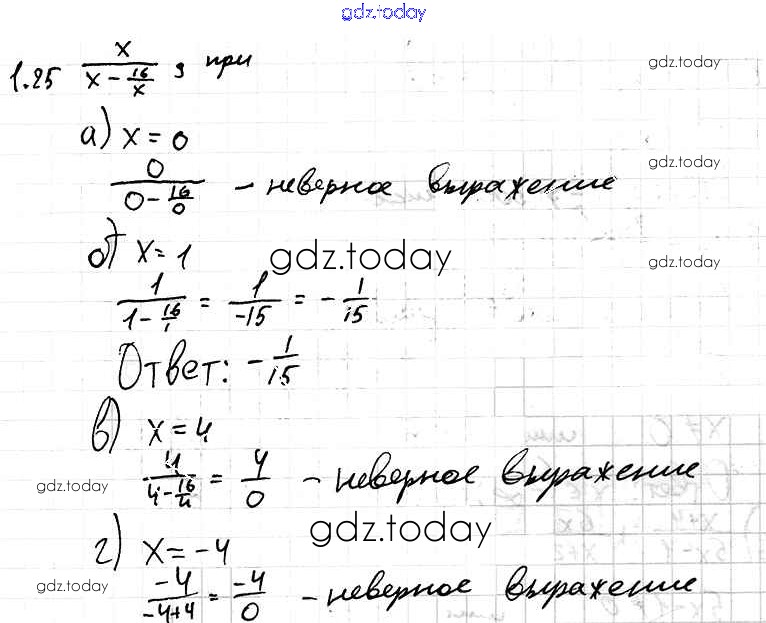 gdz.today
1.25 x / (x - 16/x), при
gdz.today
а) x = 0
0 / (0 - 16/0) - неверное выражение
gdz.today
б) x = 1
gdz.today
gdz.today
1 / (1 - 16/1) = 1 / -15 = - 1/15
Ответ: - 1/15
в) x = 4
4 / (4 - 16/4) = 4/0 - неверное выражение
gdz.today
gdz.today
г) x = -4
-4 / (-4+4) = -4/0 - неверное выражение
gdz.today